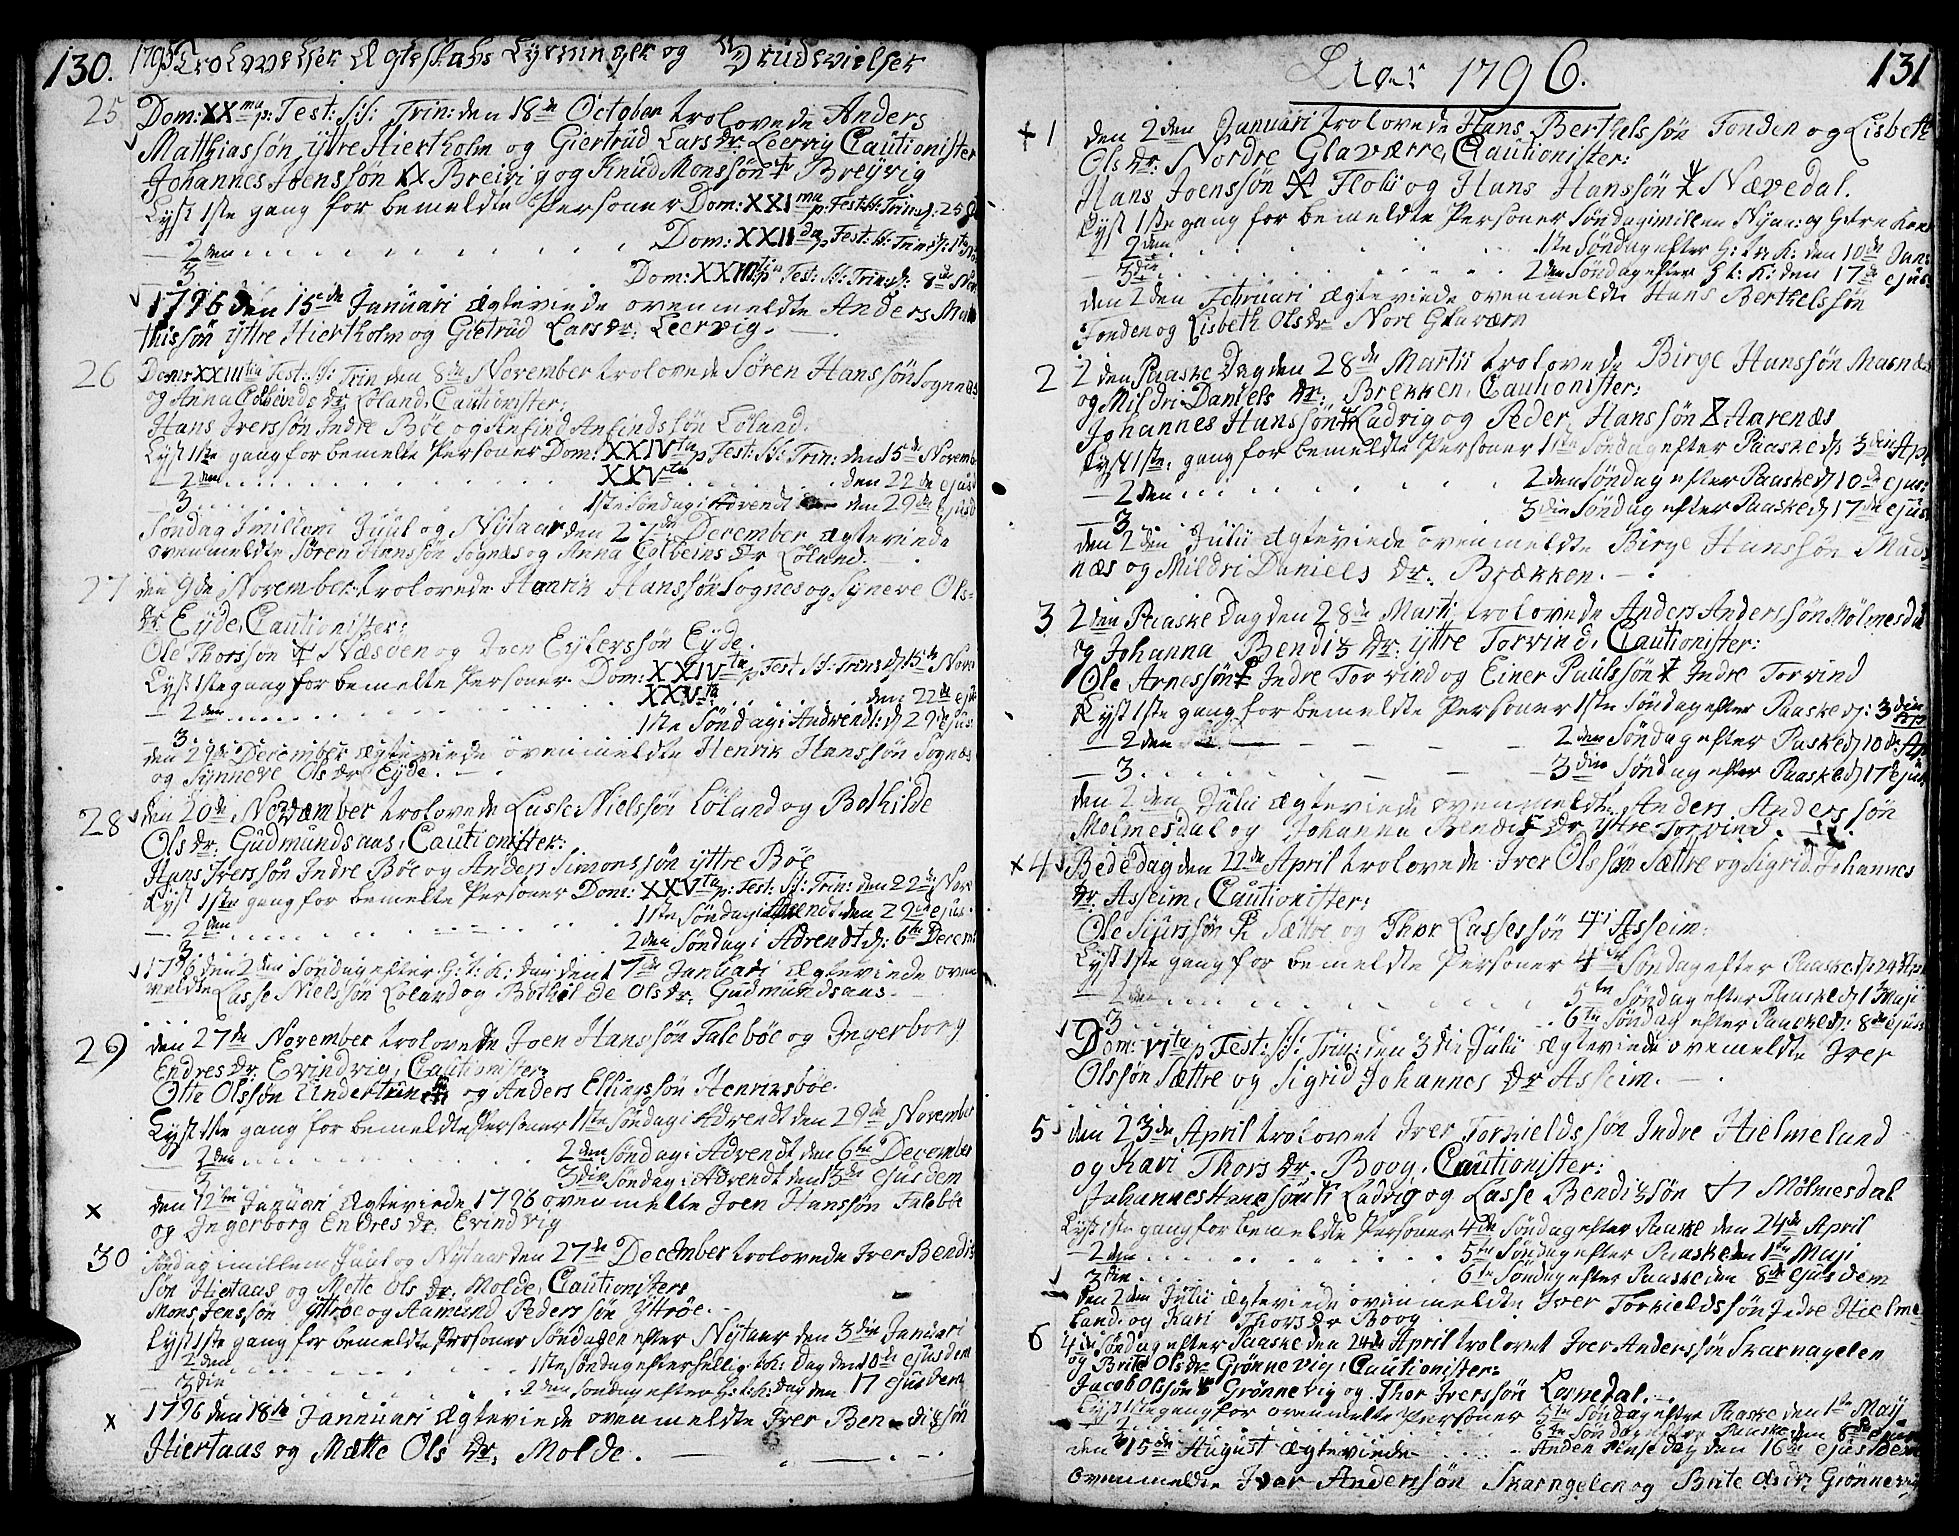 130. 1795 Trolovelser Ægteskabs Lysninger og Brudevielser
25 Dom: XXma p: Fest: SS: Trin: den 18de October trolovede Anders
Matthiassøn yttre Hiertholm og Giertrüd Lars Dr: Leervig Cautionister
Johannes Joenssøn Breivig og Knüd Monssøn Breyvig
Lyst 1ste gang for bemeldte Personer Dom: XXIma p: Fest: SS: Trin: d: 25
2den Dom: XXIIda p Fest: SS: Trin: d: 1ste
3 Dom: XXIIItia p Fest: SS: Trin: d: 8de Nov
1796 den 15de Januari Ægteviede ovenmeldte Anders Mat
thissøn yttre Hiertholm og Gietrüd Lars Dr: Leervig.
26 Dom: XXIIItia Fest: SS: Trin den 8de November trolovede Søren Hanssøn Sognnæs
og Anna Colbeinds Dr Løland, Cautionister:
Hans Iverssøn Indre Bøe og Anfind Anfindssøn Løland.
Lyst 1ste gang for bemelte Personer Dom: XXIVta p Fest: SS: Trin: den 15de Novemb
2den XXVta den 22de ejusd
3 1ste Søndag i Advendt den 29de ejusd
Søndag Imillem Juul og Nÿtaar den 27de December Ægteviede
ovenmeldte Søren Hanssøn Sognæs og Anna Colbeins Dr Løland.
27 den 9de November trolovede Henrik Hanssøn Sognes og Synneve Ols
Dr. Eÿde, Cautionister:
Ole Thorssøn Næsøen og Joen Eÿlerssøn Eÿde.
Lyst 1ste gang for bemelte Personer Dom: XXIVta p Fest SS: Trin: d: 15de Nove
2den XXVta den 22de eju
3 1ste Søndag i Andvendt: d 29 ejus
den 29de December Ægteviede ovenmeldte Henrik Hanssøn Sognæs
og Synneve Ols Dr Eÿde.
28 den 20de November trolovede Lasse Nielssøn Løland og Bothilde
Ols Dr: Gudmundsaas, Cautionister:
Hans Iverssøn Indre Bøe og Anders Simonssøn ÿttre Bøe
Lyst 1ste gang for bemelte Personer Dom: XXVta p: Fest: SS: Trin: den 22de Nov
2den 1ste Søndag i Advendt den 29de ejus
3 2den Søndag i Advendt d: 6te Decem
1796 den 2den Søndag efter H: 3: K: Dag den 17de Januari Ægteviede oven
meldte Lasse Nielssøn Løland og Bothilde Ols Dr: Gudmundsaas.
29 den 27de November trolovede Joen Hanssøn Falebøe og Ingerborg
Endres Dr: Evindvig, Cautionister:
Otte Olssøn Undertun og Anders Ellingssøn Henriksbøe.
Lyst 1ste gang for bemeldte Personer 1ste Søndag i Advendt den 29de November
2den 2den Søndag i Advendt den 6te December
3 3die Søndag i Advendt den 13de ejusdem
x den 12te Januari Ægteviede 1796 ovenmelte Joen Hanssøn Falebøe
og Ingerborg Endres Dr: Evindvig
30 Søndag imillem Juul og Nÿtaar den 27de December trolovede Iver Bendix
søn Hiertaas og Mette Ols Dr: Molde, Cautionister
Mons Jenssøn Yttrøe og Aamund Pederssøn Yttrøe.
Lyst 1ste gang for bemeldte Personer Søndagen efter Nÿtaar den 3die Januari
2den 1ste Søndag efter Hellig: 3: K: Dag den 10de ejusdem
3die 2den Søndag efter H: 3: K: Dag den 17 ejusdem
x 1796 den 18de Jannuari Ægteviede ovenmeldte Iver Bendixsøn
Hiertaas og Mætte Ols Dr: Molde.
Aar 1796. 131
+ 1 den 2den Januari trolovede Hans Berthelssøn Tonden og Lisbeth
Ols Dr: Nordre Glaværre, Cautionister:
Hans Joenssøn Flolii og Hans Hanssøn Nævedal.
Lyst 1ste gang for bemeldte Personer Søndag imillem Nyaar og H: tre Kon
2den 1ste Søndag efter H: tr: K: den 10de Jan:
3die 2den Søndag efter H t: K: den 17de ejus
den 2den Februari Ægteviede ovenmeldte Hans Berthelssøn
Tonden og Lisbeth Ols Dr Nore Glaværn
2 2den Paaske Dag den 28de Martii trolovede Birge Hanssøn Masnæs
og Mildri Daniels Dr: Brekken, Cautionister:
Johannes Hanssøn Ladvig og Peder Hanssøn Aarenæs
Lyst 1ste: gang for bemeldte Personer 1ste Søndag efter Paaske d: 3die Ap
2den 2den Søndag efter Paaske d: 10de ejus:
3 3die Søndag efter Paaske d: 17de ejus
den 2den Julii Ægteviede ovenmeldte Birge Hanssøn Mads
næs og Mildri Daniels Dr: Brækken.
3 2den Paaske Dag den 28de Marti trolovede Anders Anderssøn Mølmesdal
og Johanna Bendix Dr: yttre Torvind, Cautionister:
Ole Arnessøn Indre Torvind og Einer Paulssøn Indre Torvind
Lyst 1ste gang for bemeldte Personer 1ste Søndag efter Paaske d: 3die Ap
2den 2den Søndag efter Paaske d: 10de Ap
3 3die Søndag efter Paaske d: 17 ejus
den 2den Julii Ægteviede ovenmeldte Anders Anderssøn
Mølmesdal og Johanna Bendix Dr yttre Torvind.
x 4 Bededag den 22de April trolovede Iver Olssøn Sættre og Sigrid Johannes
Dr. Asseim, Cautionister:
Ole Siurssøn Sættre og Thor Lassessøn Asseim.
Lyst 1ste gang for bemeldte Personer 4de Søndag efter Paaske d: 24 Apr
2den 5te Søndag efter Paaske d: 1ste Maji
3 6te Søndag efter Paaske d: 8de ejus
Dom: VIta p Fest: SS: Trin: den 3die Julii Ægteviede ovemeldte Iver
Olssøn Sættre og Sigrid Johannes Dr Asseim.
5 den 23de April trolovet Iver Torkieldssøn Indre Hielmeland
og Kari Thors Dr: Boog, Cautionister:
Johannes Hanssøn Ladvig og Lasse Bendixsøn Mølmesdal
Lyst 1ste gang for bemeldte Personer 4de Søndag efter Paaske den 24de April
2den 5te Søndag efter Paaske den 1ste Maji
3die 6te Søndag efter Paaske den 8de ejusdem
den 2den Julii Ægteviede ovenmeldte Iver Torkieldssøn Indre Hielme
land og Kari Thors Dr Boog
6 4de Søndag efter Paaske den 24de April trolovet Iver Anderssøn Skarnagelen
og Brite Ols Dr Grønnevig, Cautionister:
Jacob Olssøn Grønnevig og Thor Iverssøn Lønnedal.
Lyst 1ste gang for ovenmelte Personer 5te Søndag efter Paaske den 1ste Maji
2 6te Søndag efter Paaske den 8de ejus
3 Anden Pinse Dag den 16de ejusdem
den 15de August Ægteviede
ovenmeldte Iver Anderssøn Skarngelen og Brite Ols Dr: Grønnevig